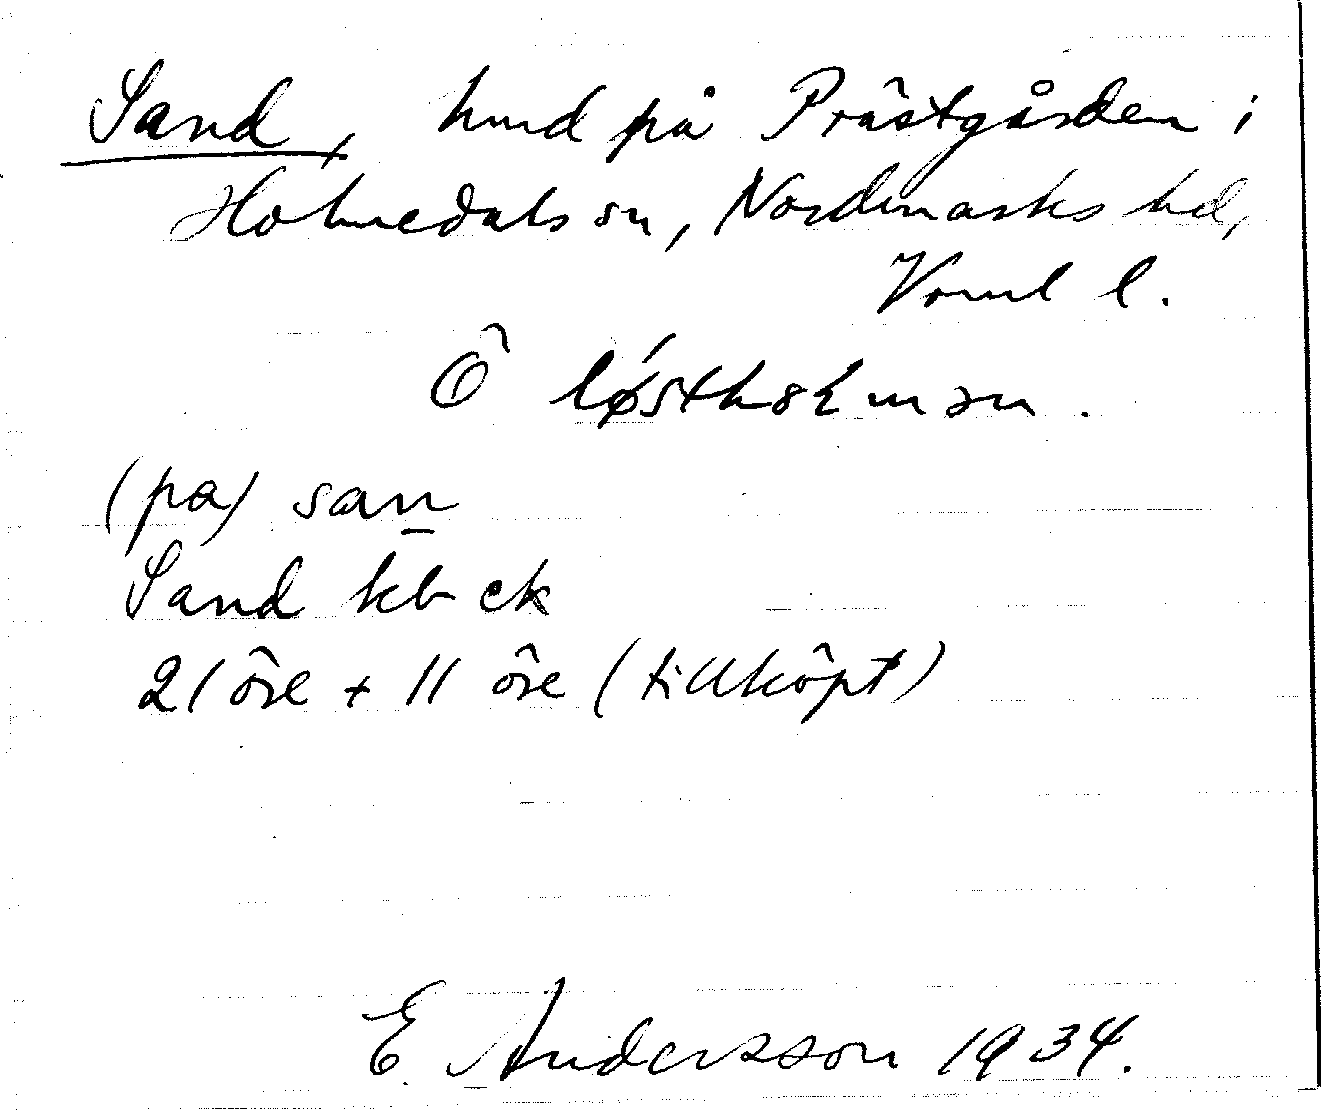 Sand, hmd på Prästgården i
Holmedals sn, Nordmarks hd,
Värml l.
Ö
(pa) san
Sand
21 öre + 11 öre (tillköpt)
E Andersson 1934.